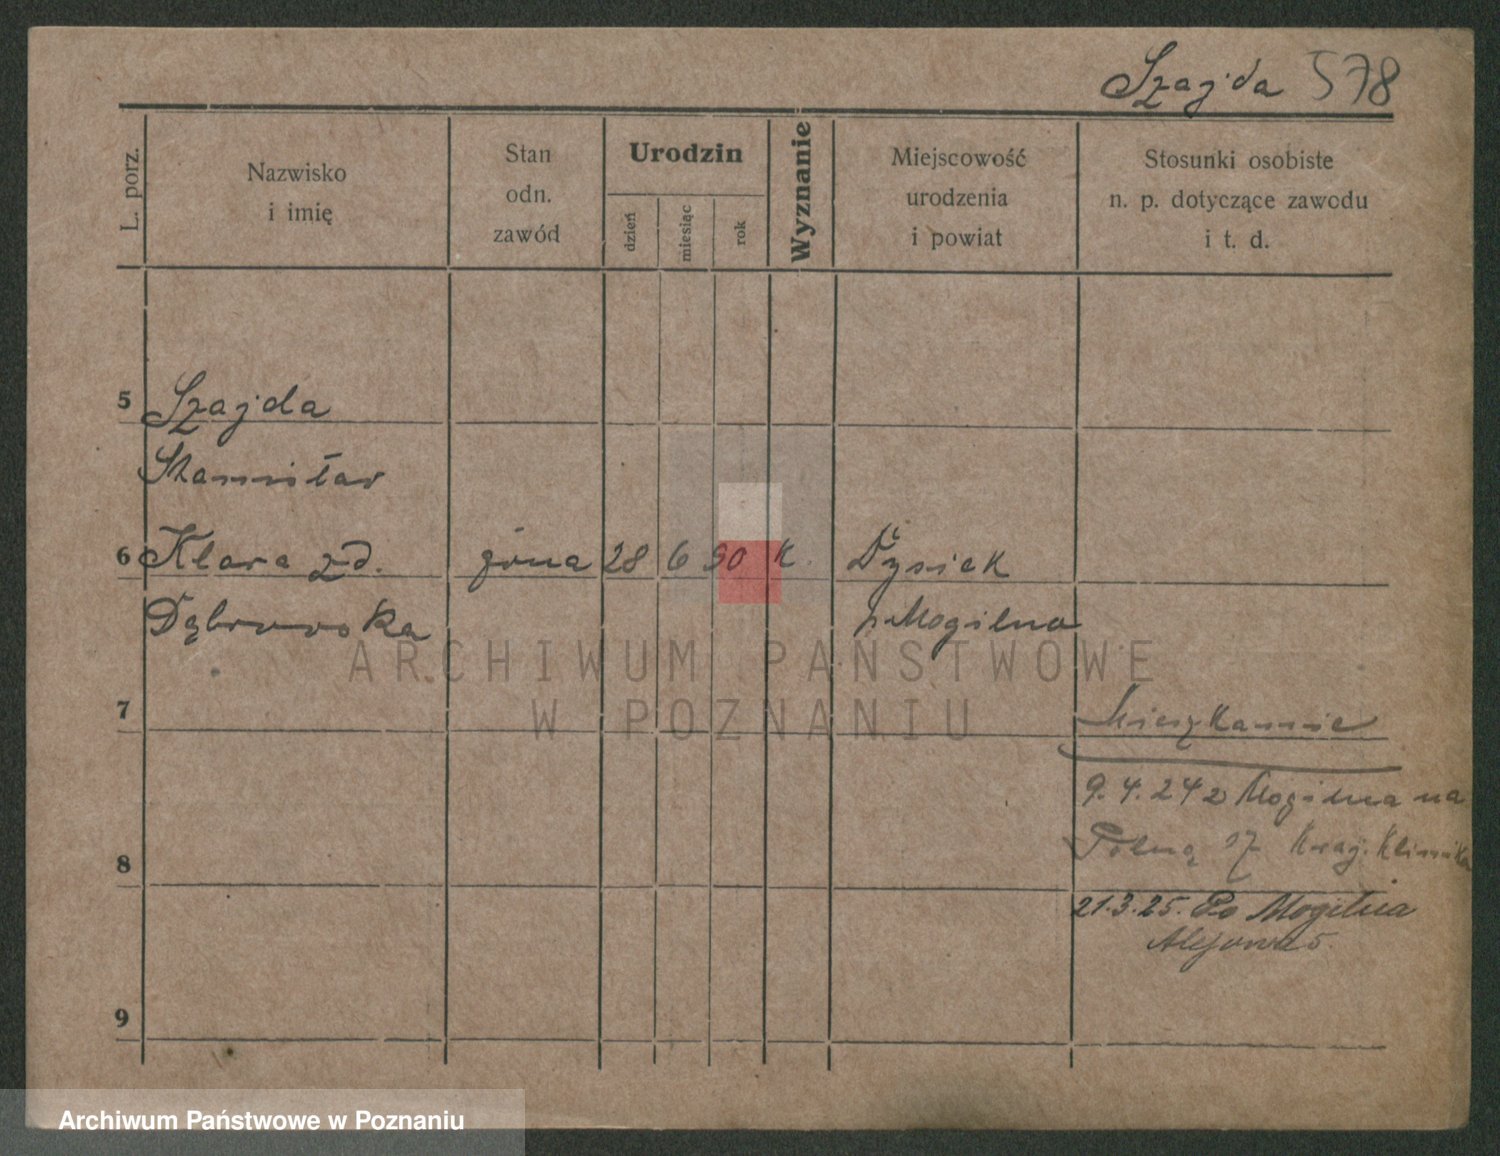 Szajda 578
L. porz.
Nazwisko
i imię
Stan
odn.
zawód
Urodzin
dzień
miesiąc
rok
Wyznanie
Miejscowość
urodzenia
i powiat
Stosunki osobiste
n. p. dotyczące zawodu
i t. d.
5 Szajda
Stanisław
6 Klara zd. żona 28 6 90 k.
Dąbrowska p. Mogilno
7 Mieszkanie
9.4.24 z Mogilna na
8 Polną 17 Kraj. Klinika
21.3.25. Do Mogilna
Alejowa 5.
9
ARCHIWUM PAŃSTWOWE
W POZNANIU
Archiwum Państwowe w Poznaniu